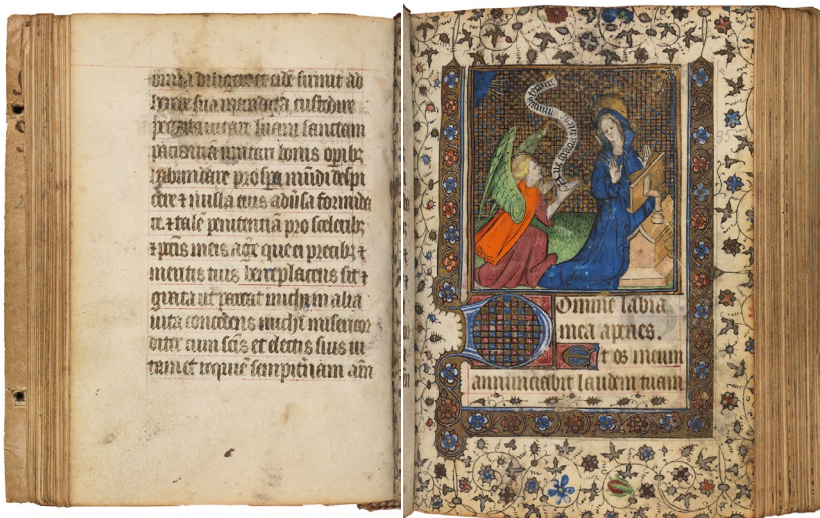 diligere et eidē servire ad
herere sua mandata custodire
peccata vitare suam sanctam
pacientiā imitari bonis opib3
habundare prospa mūdi despi
cere ⁊ nulla eius adūsa formida
re. ⁊ talē penitentiā pro sceleribꝫ
⁊ pctis meis age que ei precibꝫ ⁊
meritis tuis beneplacens sit ⁊
grata ut parcat michi in alia
vita concedens michi misericor
diter cum scīs et electis suis vi
tam et requiē sempitnam am̄
Omine labia
mea aperies.
Et os meum
annunciabit laudem tuam